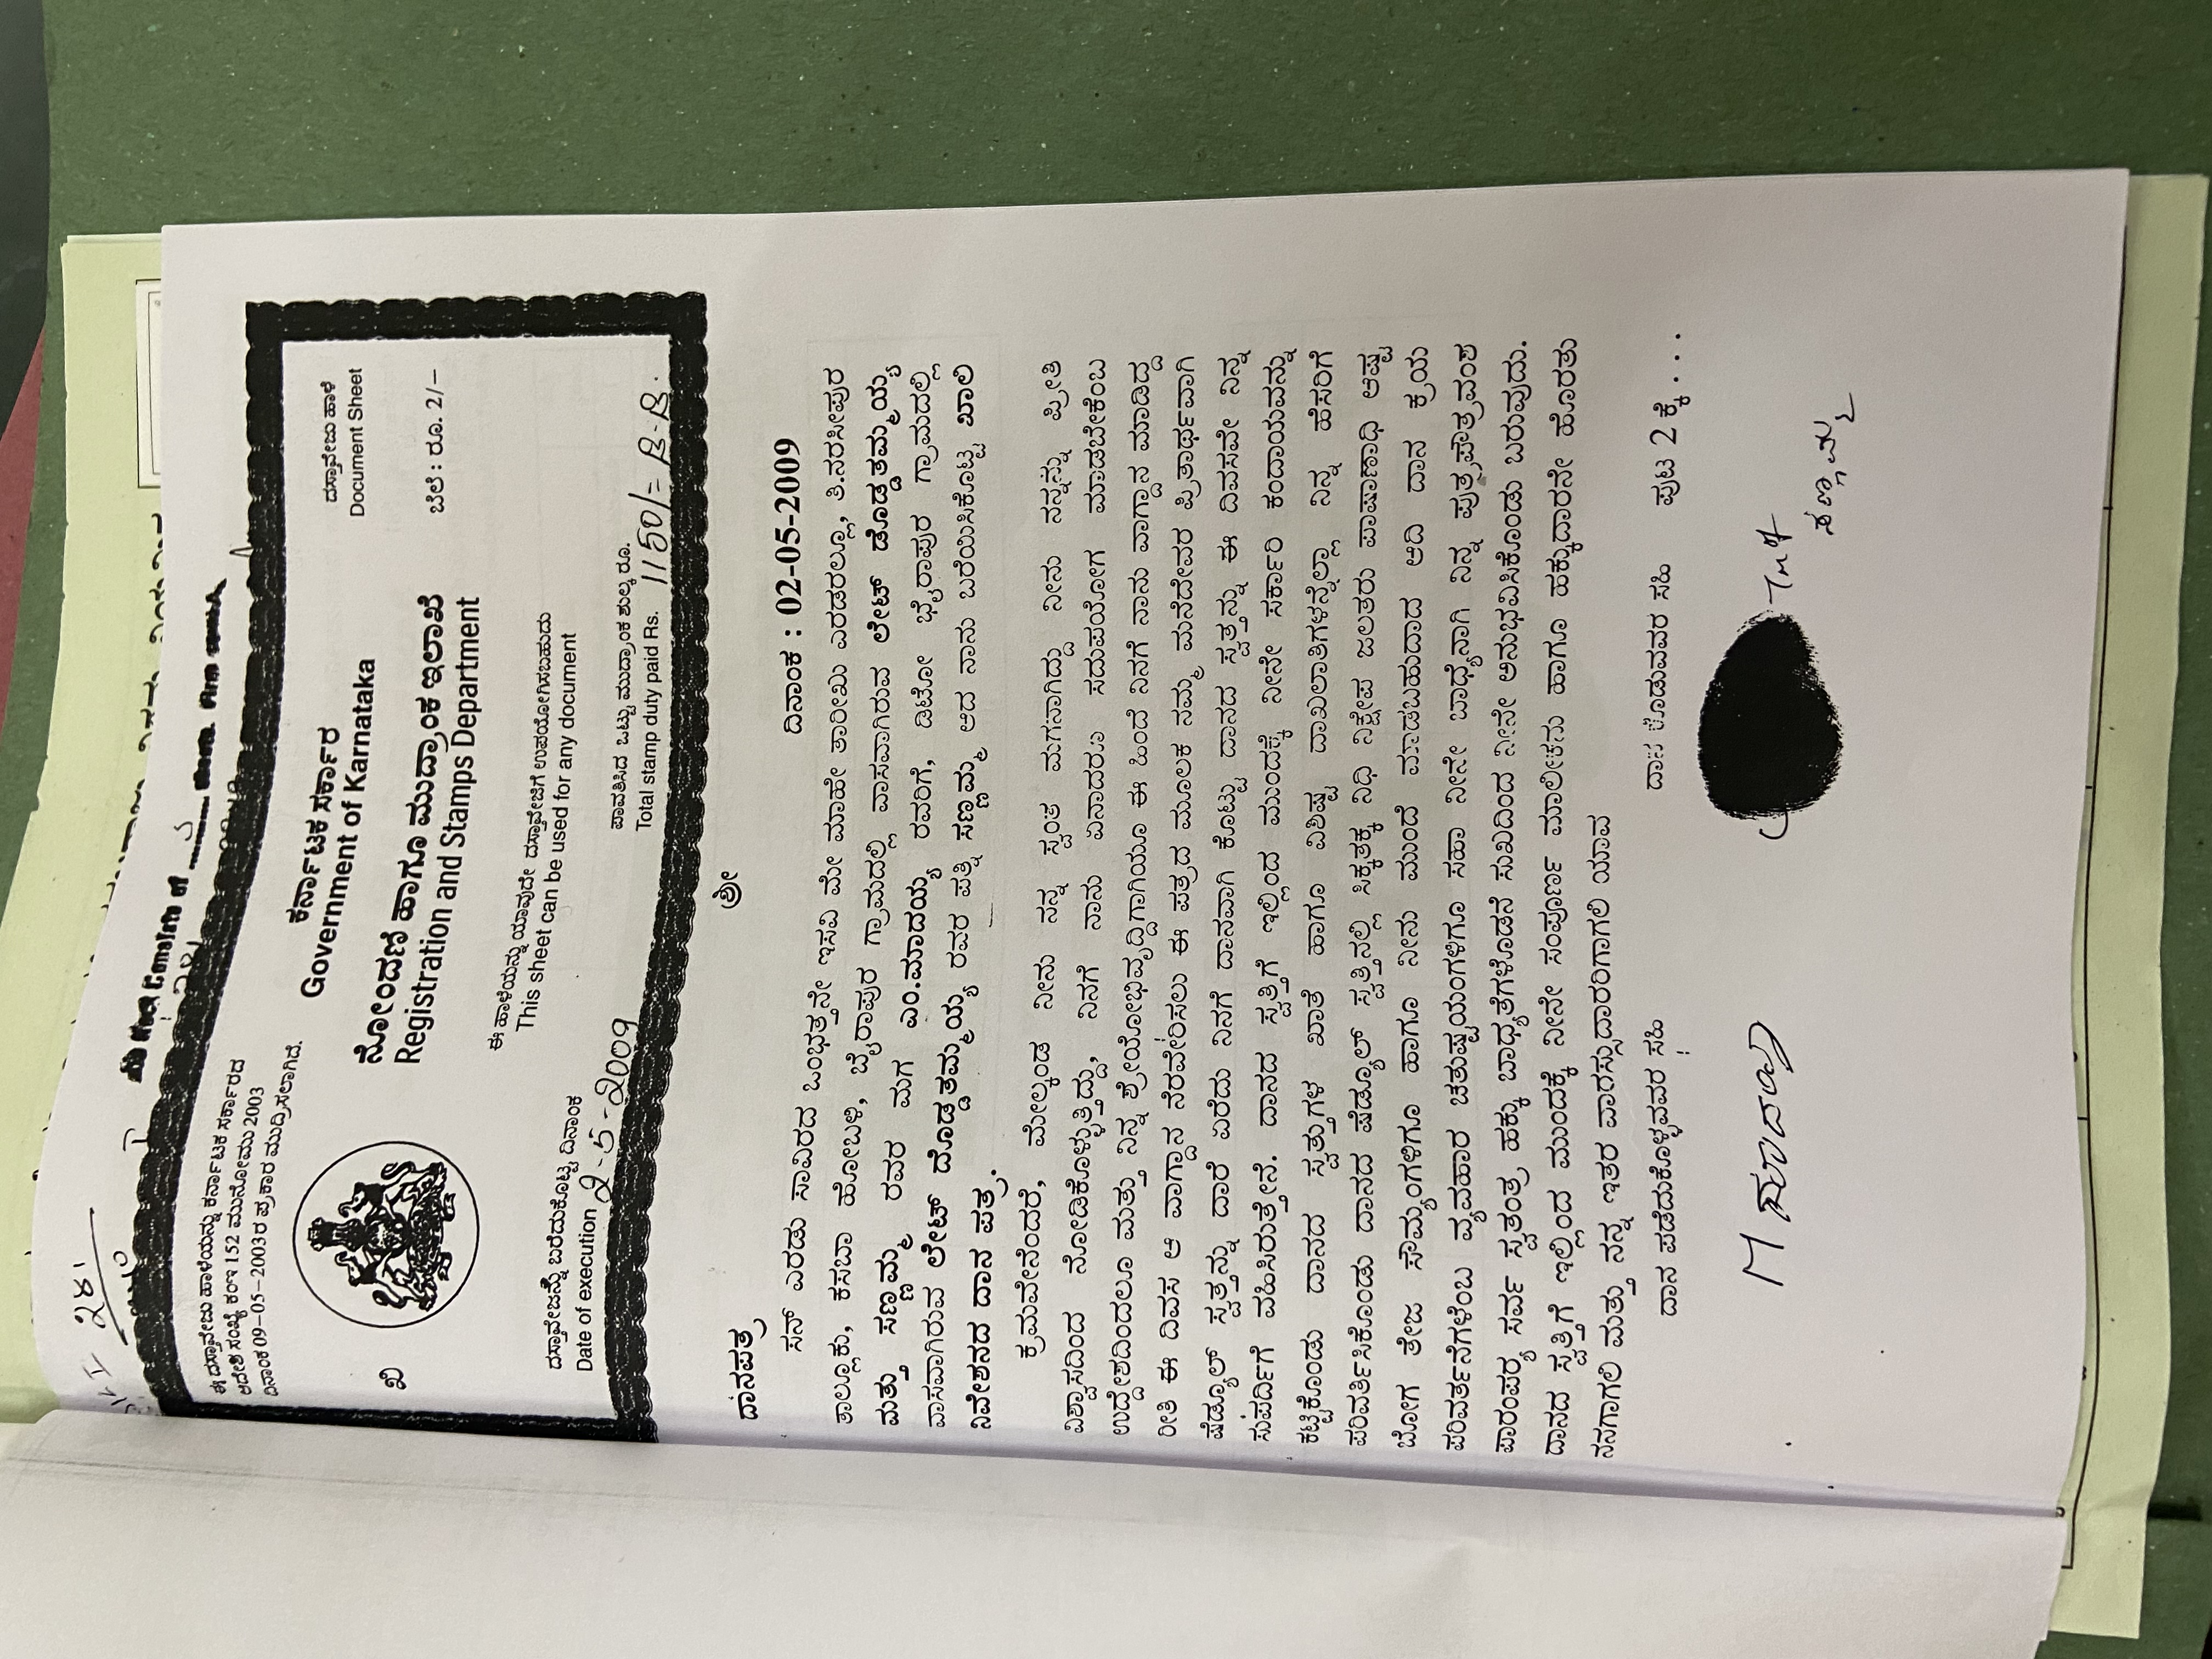 281
ಈ ದಸ್ತಾವೇಜು ಹಾಳೆಯನ್ನು ಕರ್ನಾಟಕ ಸರ್ಕಾರದ
ಆದೇಶ ಸಂಖ್ಯೆ ಕಂಇ 152 ಮುನೋಮು 2003
ದಿನಾಂಕ 09-05-2003ರ ಪ್ರಕಾರ ಮುದ್ರಿಸಲಾಗಿದೆ.
ಕರ್ನಾಟಕ ಸರ್ಕಾರ
Government of Karnataka
ದಸ್ತಾವೇಜು ಹಾಳೆ
Document Sheet
ನೋಂದಣಿ ಹಾಗೂ ಮುದ್ರಾಂಕ ಇಲಾಖೆ
Registration and Stamps Department
ಬೆಲೆ : ರೂ. 2/-
ಈ ಹಾಳೆಯನ್ನು ಯಾವುದೇ ದಸ್ತಾವೇಜಿಗೆ ಉಪಯೋಗಿಸಬಹುದು
This sheet can be used for any document
ದಸ್ತಾವೇಜನ್ನು ಬರೆದುಕೊಟ್ಟ ದಿನಾಂಕ
Date of execution 2-5-2009
ಪಾವತಿಸಿದ ಒಟ್ಟು ಮುದ್ರಾಂಕ ಶುಲ್ಕ ರೂ.
Total stamp duty paid Rs. 1150/=
ಶ್ರೀ
ದಾನಪತ್ರ
ದಿನಾಂಕ : 02-05-2009
ಸನ್ ಎರಡು ಸಾವಿರದ ಒಂಭತ್ತನೇ ಇಸವಿ ಮೇ ಮಾಹೇ ತಾರೀಖು ಎರಡರಲ್ಲೂ, ತಿ.ನರಸೀಪುರ
ತಾಲ್ಲೂಕು, ಕಸಬಾ ಹೋಬಳಿ, ಭೈರಾಪುರ ಗ್ರಾಮದಲ್ಲಿ ವಾಸವಾಗಿರುವ ಲೇಟ್ ದೊಡ್ಡತಮ್ಮಯ್ಯ
ಮತ್ತು ಸಣ್ಣಮ್ಮ ರವರ ಮಗ ಎಂ.ಮಾದಯ್ಯ ರವರಿಗೆ, ಡಿಟೋ ಭೈರಾಪುರ ಗ್ರಾಮದಲ್ಲಿ
ವಾಸವಾಗಿರುವ ಲೇಟ್ ದೊಡ್ಡತಮ್ಮಯ್ಯ ರವರ ಪತ್ನಿ ಸಣ್ಣಮ್ಮ ಆದ ನಾನು ಬರೆಯಿಸಿಕೊಟ್ಟ ಖಾಲಿ
ನಿವೇಶನದ ದಾನ ಪತ್ರ.
ಕ್ರಮವೇನೆಂದರೆ, ಮೇಲ್ಕಂಡ ನೀನು ನನ್ನ ಸ್ವಂತ ಮಗನಾಗಿದ್ದು ನೀನು ನನ್ನನ್ನು ಪ್ರೀತಿ
ವಿಶ್ವಾಸದಿಂದ ನೋಡಿಕೊಳ್ಳುತ್ತಿದ್ದು, ನಿನಗೆ ನಾನು ಏನಾದರೂ ಸದುಪಯೋಗ ಮಾಡಬೇಕೆಂಬ
ಉದ್ದೇಶದಿಂದಲೂ ಮತ್ತು ನಿನ್ನ ಶ್ರೇಯೋಭಿವೃದ್ಧಿಗಾಗಿಯೂ ಈ ಹಿಂದೆ ನಿನಗೆ ನಾನು ವಾಗ್ದಾನ ಮಾಡಿದ್ದ
ರೀತಿ ಈ ದಿವಸ ಆ ವಾಗ್ದಾನ ನೆರವೇರಿಸಲು ಈ ಪತ್ರದ ಮೂಲಕ ನಮ್ಮ ಮನೆದೇವರ ಪ್ರಿತಾರ್ಥವಾಗಿ
ಷೆಡ್ಯೂಲ್ ಸ್ವತ್ತನ್ನು ದಾರೆ ಏರೆದು ನಿನಗೆ ದಾನವಾಗಿ ಕೊಟ್ಟು ದಾನದ ಸ್ವತ್ತನ್ನು ಈ ದಿವಸವೇ ನಿನ್ನ
ಸುಪರ್ದಿಗೆ ವಹಿಸಿರುತ್ತೇನೆ. ದಾನದ ಸ್ವತ್ತಿಗೆ ಇಲ್ಲಿಂದ ಮುಂದಕ್ಕೆ ನೀನೇ ಸರ್ಕಾರಿ ಕಂದಾಯವನ್ನು
ಕಟ್ಟಿಕೊಂಡು ದಾನದ ಸ್ವತ್ತುಗಳ ಖಾತೆ ಹಾಗೂ ವಿಶಿಷ್ಟ ದಾಖಲಾತಿಗಳನ್ನೆಲ್ಲಾ ನಿನ್ನ ಹೆಸರಿಗೆ
ಪರಿವರ್ತಿಸಿಕೊಂಡು ದಾನದ ಷೆಡ್ಯೂಲ್ ಸ್ವತ್ತಿನಲ್ಲಿ ಸಿಕ್ಕತಕ್ಕ ನಿಧಿ ನಿಕ್ಷೇಪ ಜಲತರು ಪಾಷಾಣಾಧಿ ಅಷ್ಟ
ಬೋಗ ತೇಜ ಸೌಮ್ಯಂಗಳಿಗೂ ಹಾಗೂ ನೀನು ಮುಂದೆ ಮಾಡಬಹುದಾದ ಆದಿ ದಾನ ಕ್ರಯ
ಪರಿವರ್ತನೆಗಳೆಂಬ ವ್ಯವಹಾರ ಚತುಷ್ಟಯಂಗಳಿಗೂ ಸಹಾ ನೀನೇ ಬಾಧ್ಯನಾಗಿ ನಿನ್ನ ಪುತ್ರಪೌತ್ರವಂಶ
ಪಾರಂಪರ್ಯ ಸರ್ವ ಸ್ವತಂತ್ರ ಹಕ್ಕು ಬಾಧ್ಯತೆಗಳೊಡನೆ ಸುಖದಿಂದ ನೀನೇ ಅನುಭವಿಸಿಕೊಂಡು ಬರುವುದು.
ದಾನದ ಸ್ವತ್ತಿಗೆ ಇಲ್ಲಿಂದ ಮುಂದಕ್ಕೆ ನೀನೇ ಸಂಪೂರ್ಣ ಮಾಲೀಕನು ಹಾಗೂ ಹಕ್ಕುದಾರನೇ ಹೊರತು
ನನಗಾಗಲಿ ಮತ್ತು ನನ್ನ ಇತರ ವಾರಸ್ಸುದಾರರಿಗಾಗಲಿ ಯಾವ
ದಾನ ಪಡೆದುಕೊಳ್ಳುವವರ ಸಹಿ
ದಾನ ಕೊಡುವವರ ಸಹಿ
ಪುಟ 2 ಕ್ಕೆ....
M ಮಾದಯ್ಯ
ಸಣ್ಣಮ್ಮ